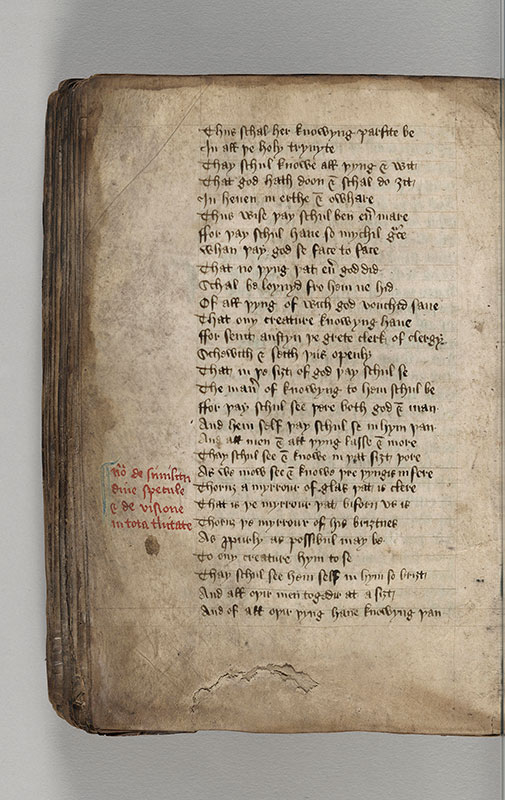 Thus schal her knowyng parfite be
In all þe holy trynyte
Thay schul knowe all þyng & wit
That god hath doon & schal do ȝit
In heuen in erthe & owhare
Thus wise þay schul ben eu͛ mare
ffor þay schul haue so mychil gͣce
Whan þay god se face to face
That no þyng þat eu͛ god did
Schal be loynyd fro hem ne hid
Of all þyng of wich god vouched saue
That ony creature knowyng haue
ffor seint austyn þe grete clerk of clergy
Schewith & seith þus openly
That in þe siȝt of god þay schul se
The man͛ of knowyng to hem schul be
ffor þay schul see þere both god & man
And hem self þay schul se in hym þan
And all men & all þyng lasse & more
Thay schul see & knowe in þat siȝt þore
As we mow see & knowe þre þyngis in fere
Thoruȝ a myrrour of glas þat is clere
That is þe myrrour þat biforn us is
Thoruȝ þe myrrour of his briȝtnes
As ꝓpurly as possibul may be
To ony creature hym to se
Thay schul see hem self in hym so briȝt
And all oþir men togedir at a siȝt
And of all oþir þyng haue knowyng þan
no͛ de
diuine specule
& de visione
in tota